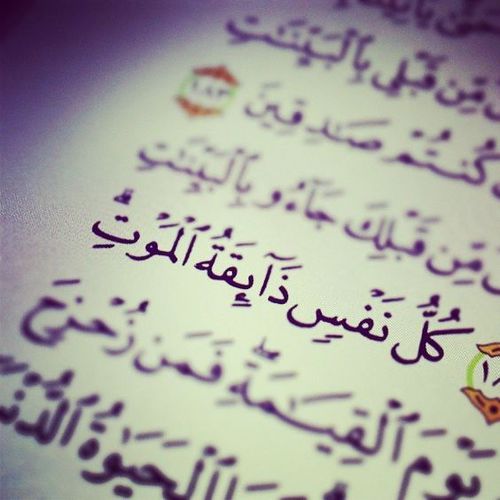 مِّن قَبْلِى بِٱلْبَيِّنَٰتِ
كُنتُمْ صَٰدِقِينَ ١٨٣
مِّن قَبْلِكَ جَآءُو بِٱلْبَيِّنَٰتِ
كُلُّ نَفْسٍ ذَآئِقَةُ ٱلْمَوْتِ ۗ
يَوْمَ ٱلْقِيَٰمَةِ ۖ فَمَن زُحْزِحَ
ٱلْحَيَوٰةُ ٱلدُّنْيَا